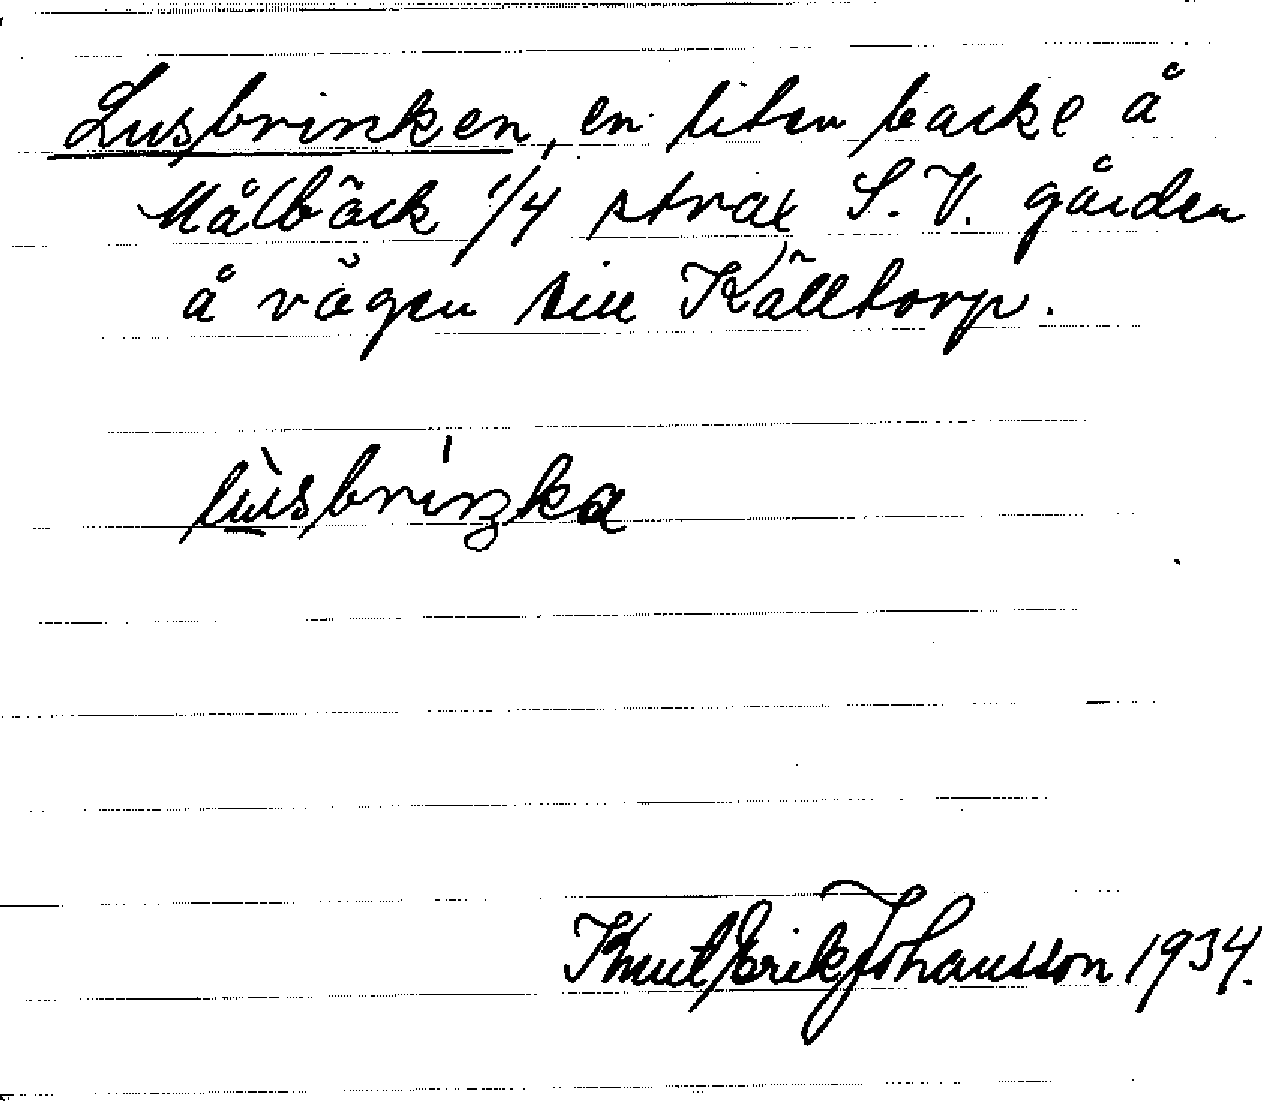 Lusbrinken, en liten backe å
Målbäck 1/4 strax S.V. gården
å vägen till Källtorp.
lùsbríŋka
Knut Erik Johansson 1934.